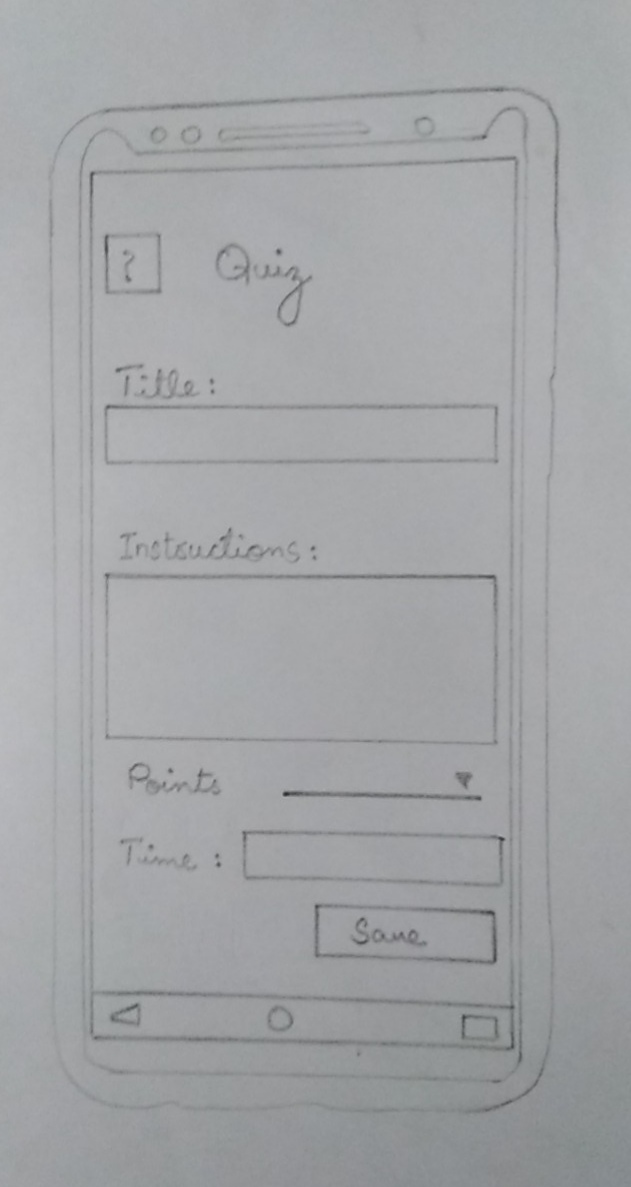 ? Quiz
Title:
Instructions:
Points
Time :
Save